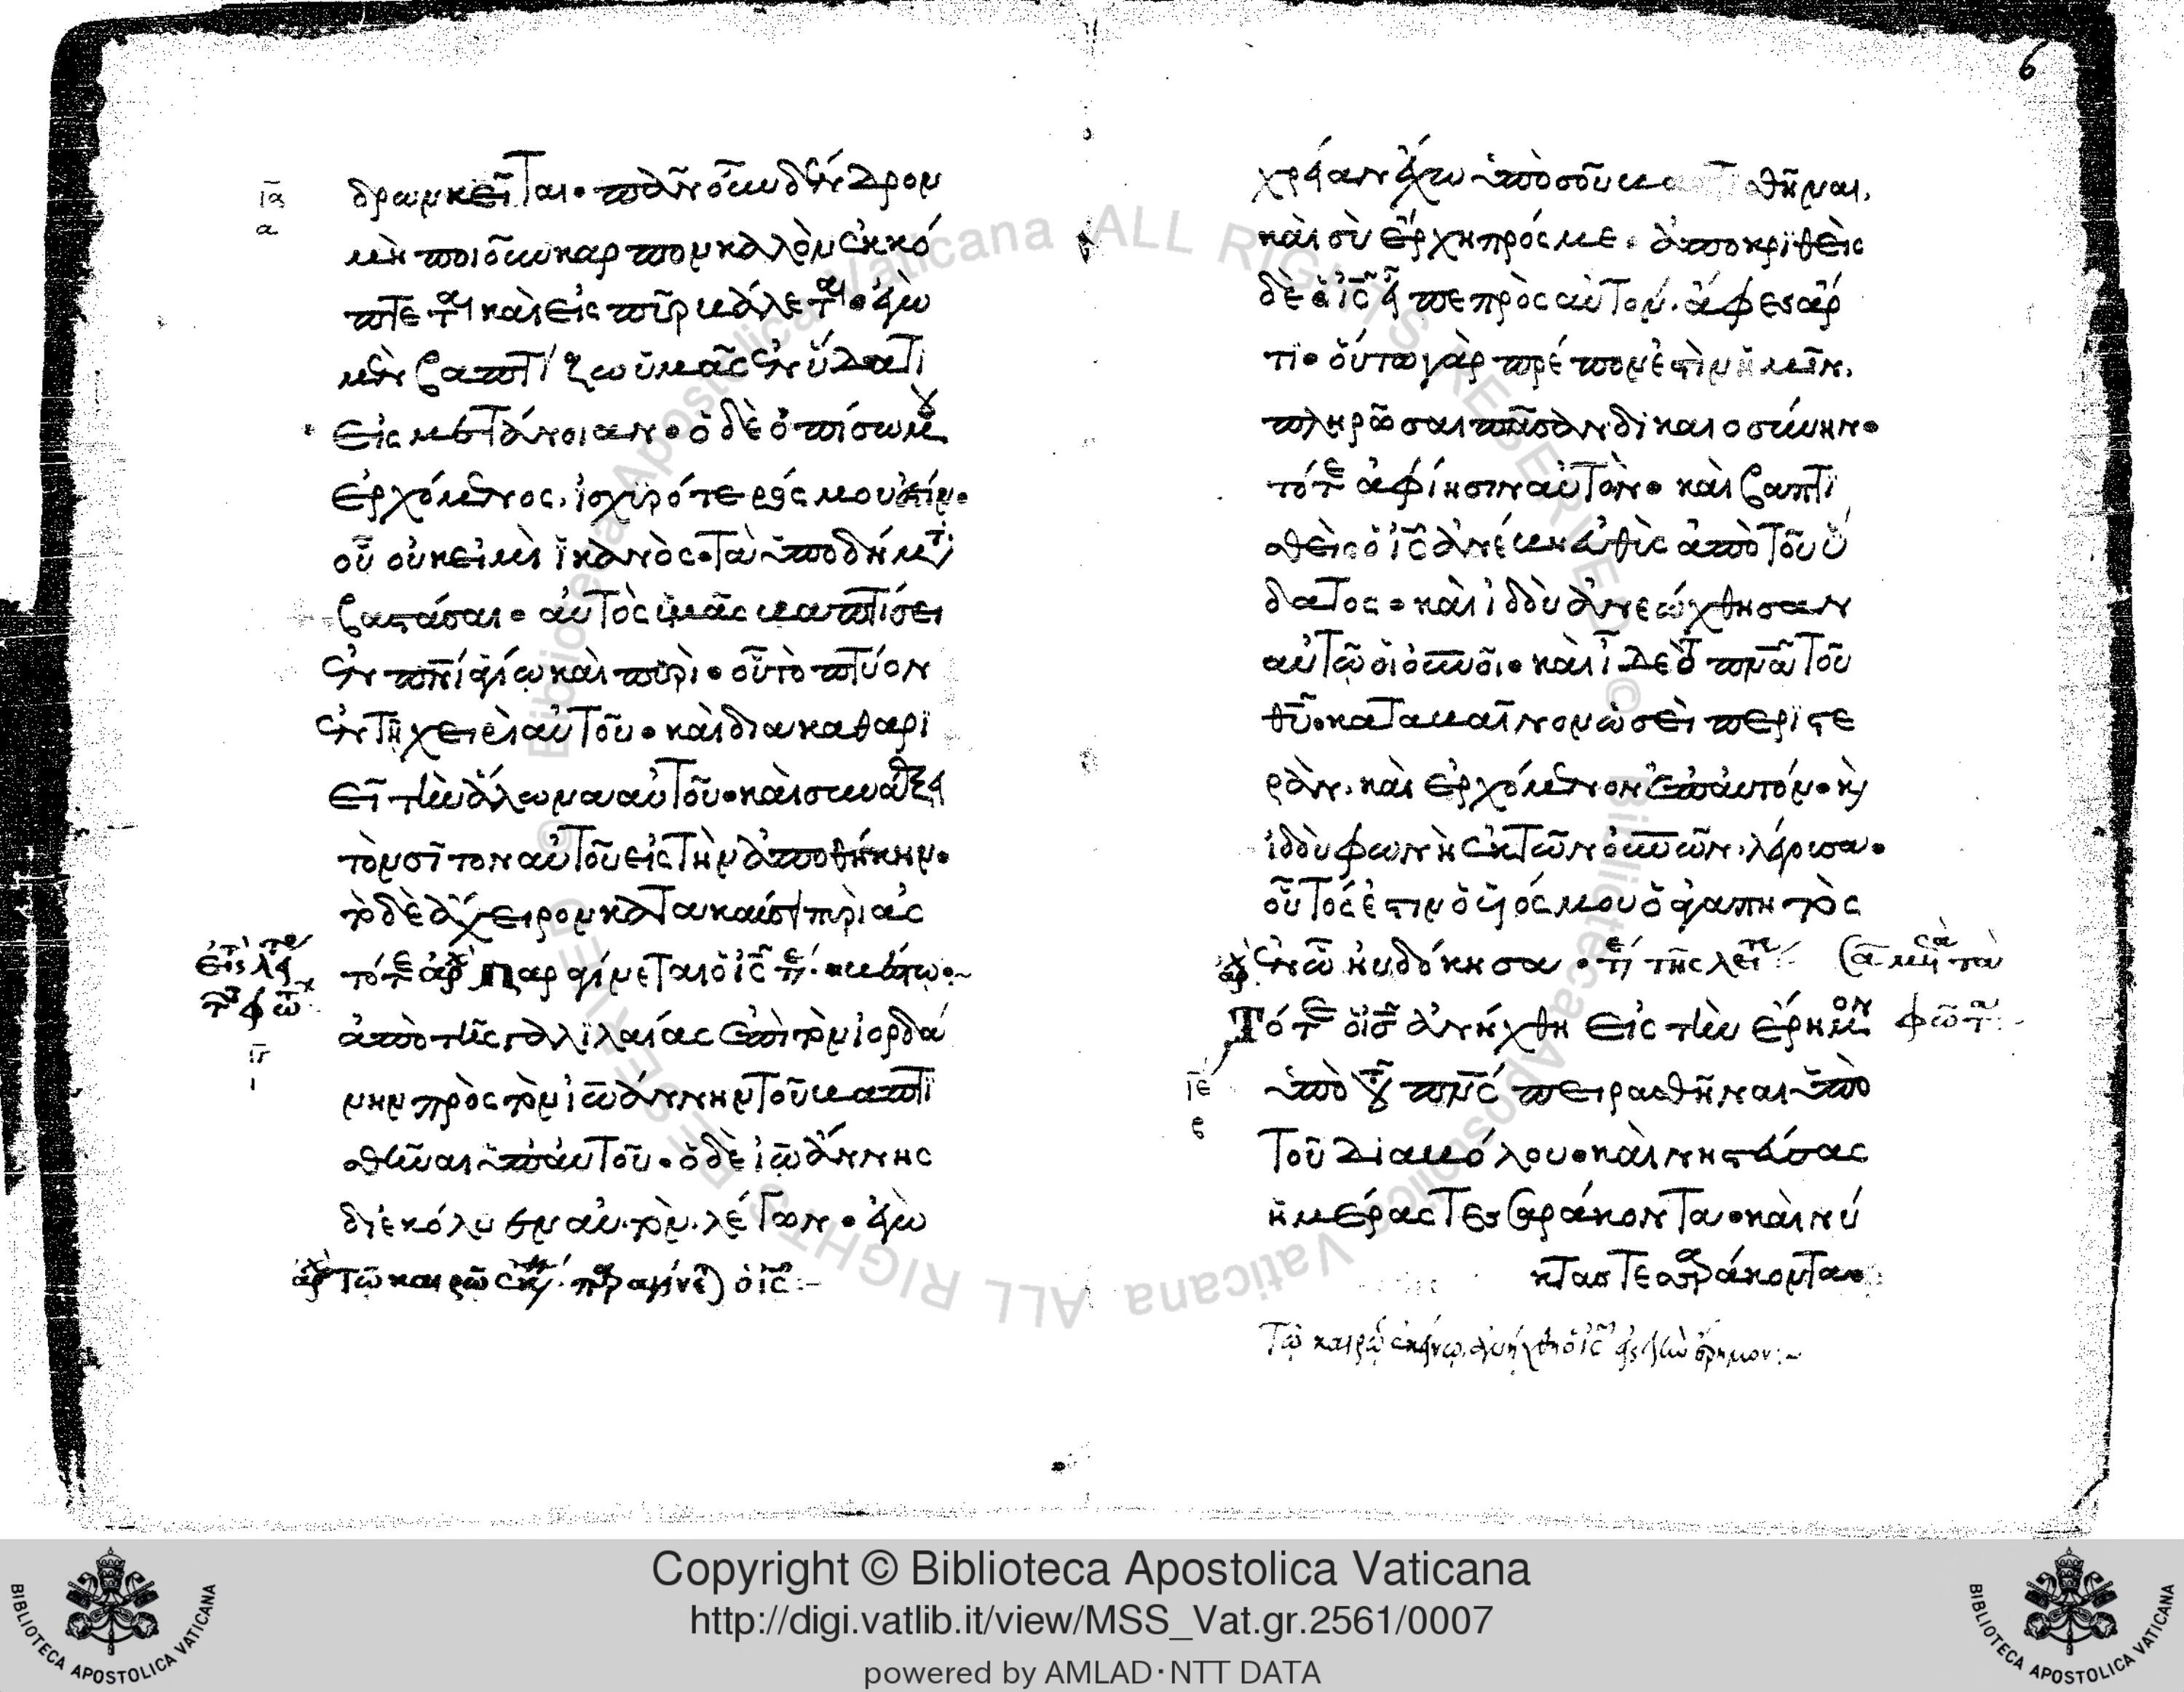 ια
α
δρων κεῖται· πᾶν οὖν δένδρον
μὴ ποιοῦν καρπον καλὸν ἐκκό
πτεται καὶ εἰς πῦρ βάλεται· ἐγὼ
μὲν βαπτίζω ὑμᾶς ἐν ὕδατι
εἰς μετάνοιαν· ὁ δὲ ὀπίσω μου
ἐρχόμενος, ἰσχυρότερός μου ἐστίν·
οὗ οὐκ εἰμὶ ἱκανὸς τὰ ὑποδήματα
βαστάσαι· αὐτὸς ὑμᾶς βαπτίσει
ἐν πνι ἁγίω καὶ πυρὶ· οὗ τὸ πτύον
ἐν τῇ χειρὶ αὐτοῦ· καὶ διακαθαρι
εῖ τὴν ἅλωνα αὐτοῦ· καὶ συνάξει
τὸν σῖτον αὐτοῦ εἰς τὴν ἀποθήκην·
τὸ δὲ ἄχυρον κατακαύσει πυρὶ ἀς
τότε αρχ παραγίνεται ὁ ις
ἀπὸ τῆς γαλιλαίας ἐπὶ τὸν ἰορδά
νην πρὸς τὸν ἰωάννην τοῦ βαπτι
σθῆναι ὑπ' αὐτοῦ· ὁ δὲ ἰωάννης
διεκόλυεν αὐτὸν λέγων· ἐγὼ
αρχ τῶ καιρῶ ἐκει παραγίνεται ὁ ις:~
ιγ
ι
6
χρείαν ἔχω ὑπὸ σοῦ βαπτισθῆναι,
καὶ σὺ ἔρχη πρός με· ἀποκριθεὶς
δὲ ὁ ις εἶπε πρὸς αὐτόν· ἄφες ἄρ
τι· οὕτω γὰρ πρέπον ἐστὶν ἡμῖν,
πληρῶσαι πᾶσαν δικαιοσύνην·
τότε ἀφίησιν αὐτὸν· καὶ βαπτι
σθεὶς ὁ ις ἀνέβη εὐθὺς ἀπὸ τοῦ ὕ
δατος· καὶ ἰδοὺ ἀνεώχθησαν
αὐτῶ οἱ ουνοι· καὶ ἴδε τὸ πνα τοῦ
θυ καταβαῖνον ὡσεὶ περιστε
ρὰν, καὶ ἐρχόμενον ἐπ' αυτόν· κὶ
ἰδοὺ φωνὴ ἐκ τῶν ουνων· λέγουσα·
οὗτός ἐστιν ὁ υἱός μου ὁ ἀγαπητὸς
ἐν ὧ ηὐδόκησα·
Τότε ὁ ις ἀνήχθη εἰς τὴν ἔρημον
ὑπὸ του πνς πειρασθῆναι ὑπὸ
τοῦ διαβόλου· καὶ νηστεύσας
ἡμέρας τεσσαράκοντα· καὶ νύ
κτας τεσσαράκοντα·
ιε
ϛ
Τῷ καιρῷ ἐκείνῳ, ἀνήχθη ὁ ις εἰς τὴν ἔρημον:~
Copyright © Biblioteca Apostolica Vaticana
http://digi.vatlib.it/view/MSS_Vat.gr.2561/0007
powered by AMLAD·NTT DATA
BIBLIOTECA APOSTOLICA VATICANA
BIBLIOTECA APOSTOLICA VATICANA